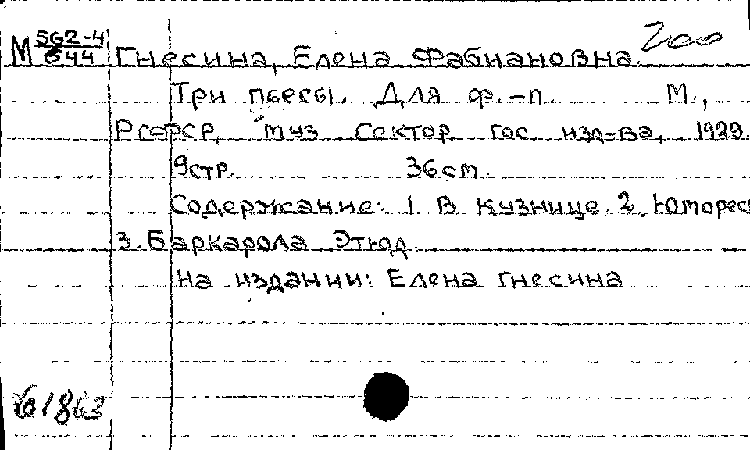 М SG2-4 Гнесина, Елена Фабиановна. 200
644
Три пьесы. Для ф.-п. М.,
РСФСР, муз сектор гос изд-ва, 1929.
9стр. 36см.
Содержание: 1 В кузнице. 2. Юморес
3. Баркарола Этюд
На издании: Елена Гнесина
1863